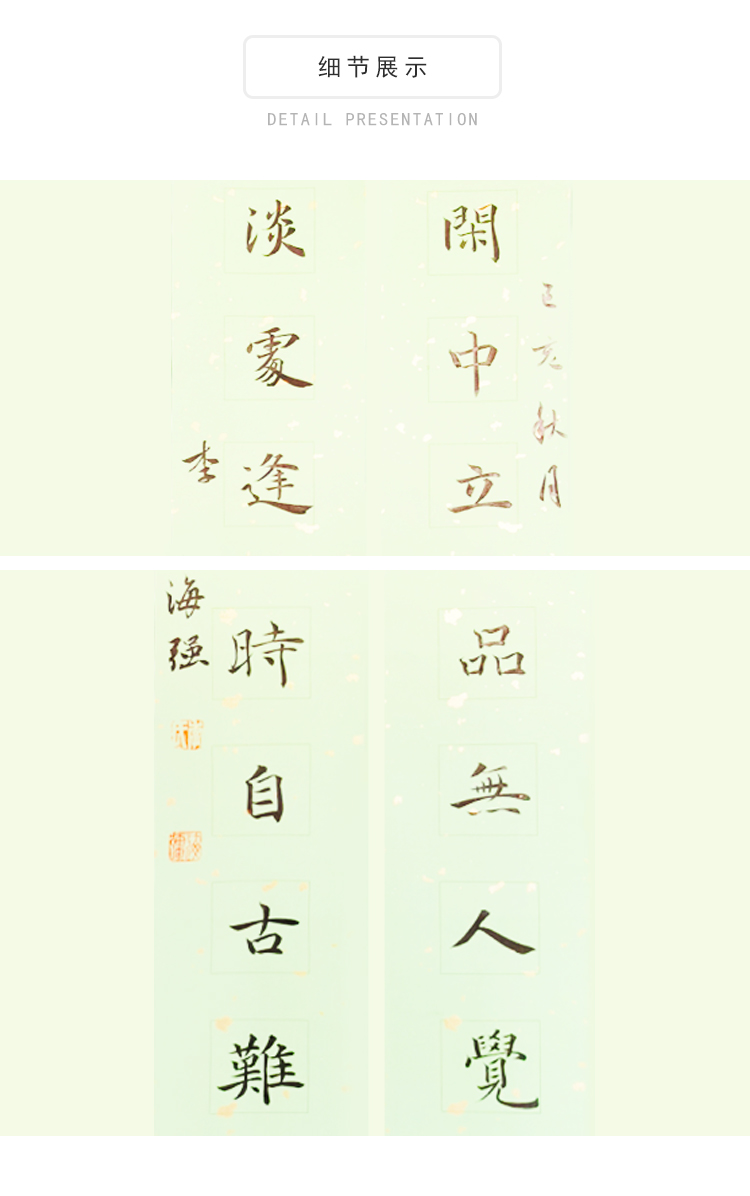 细节展示
DETAIL PRESENTATION
閑中立
淡處逢
己亥秋月
李
品無人覺
時自古難
海强